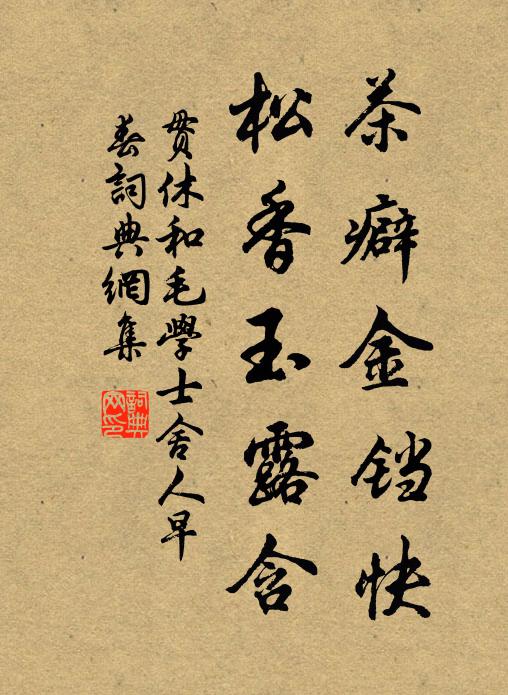 茶癖金铛快
松香玉露含
贯休和毛學士舍人早
春詞典網集
詞典
网印